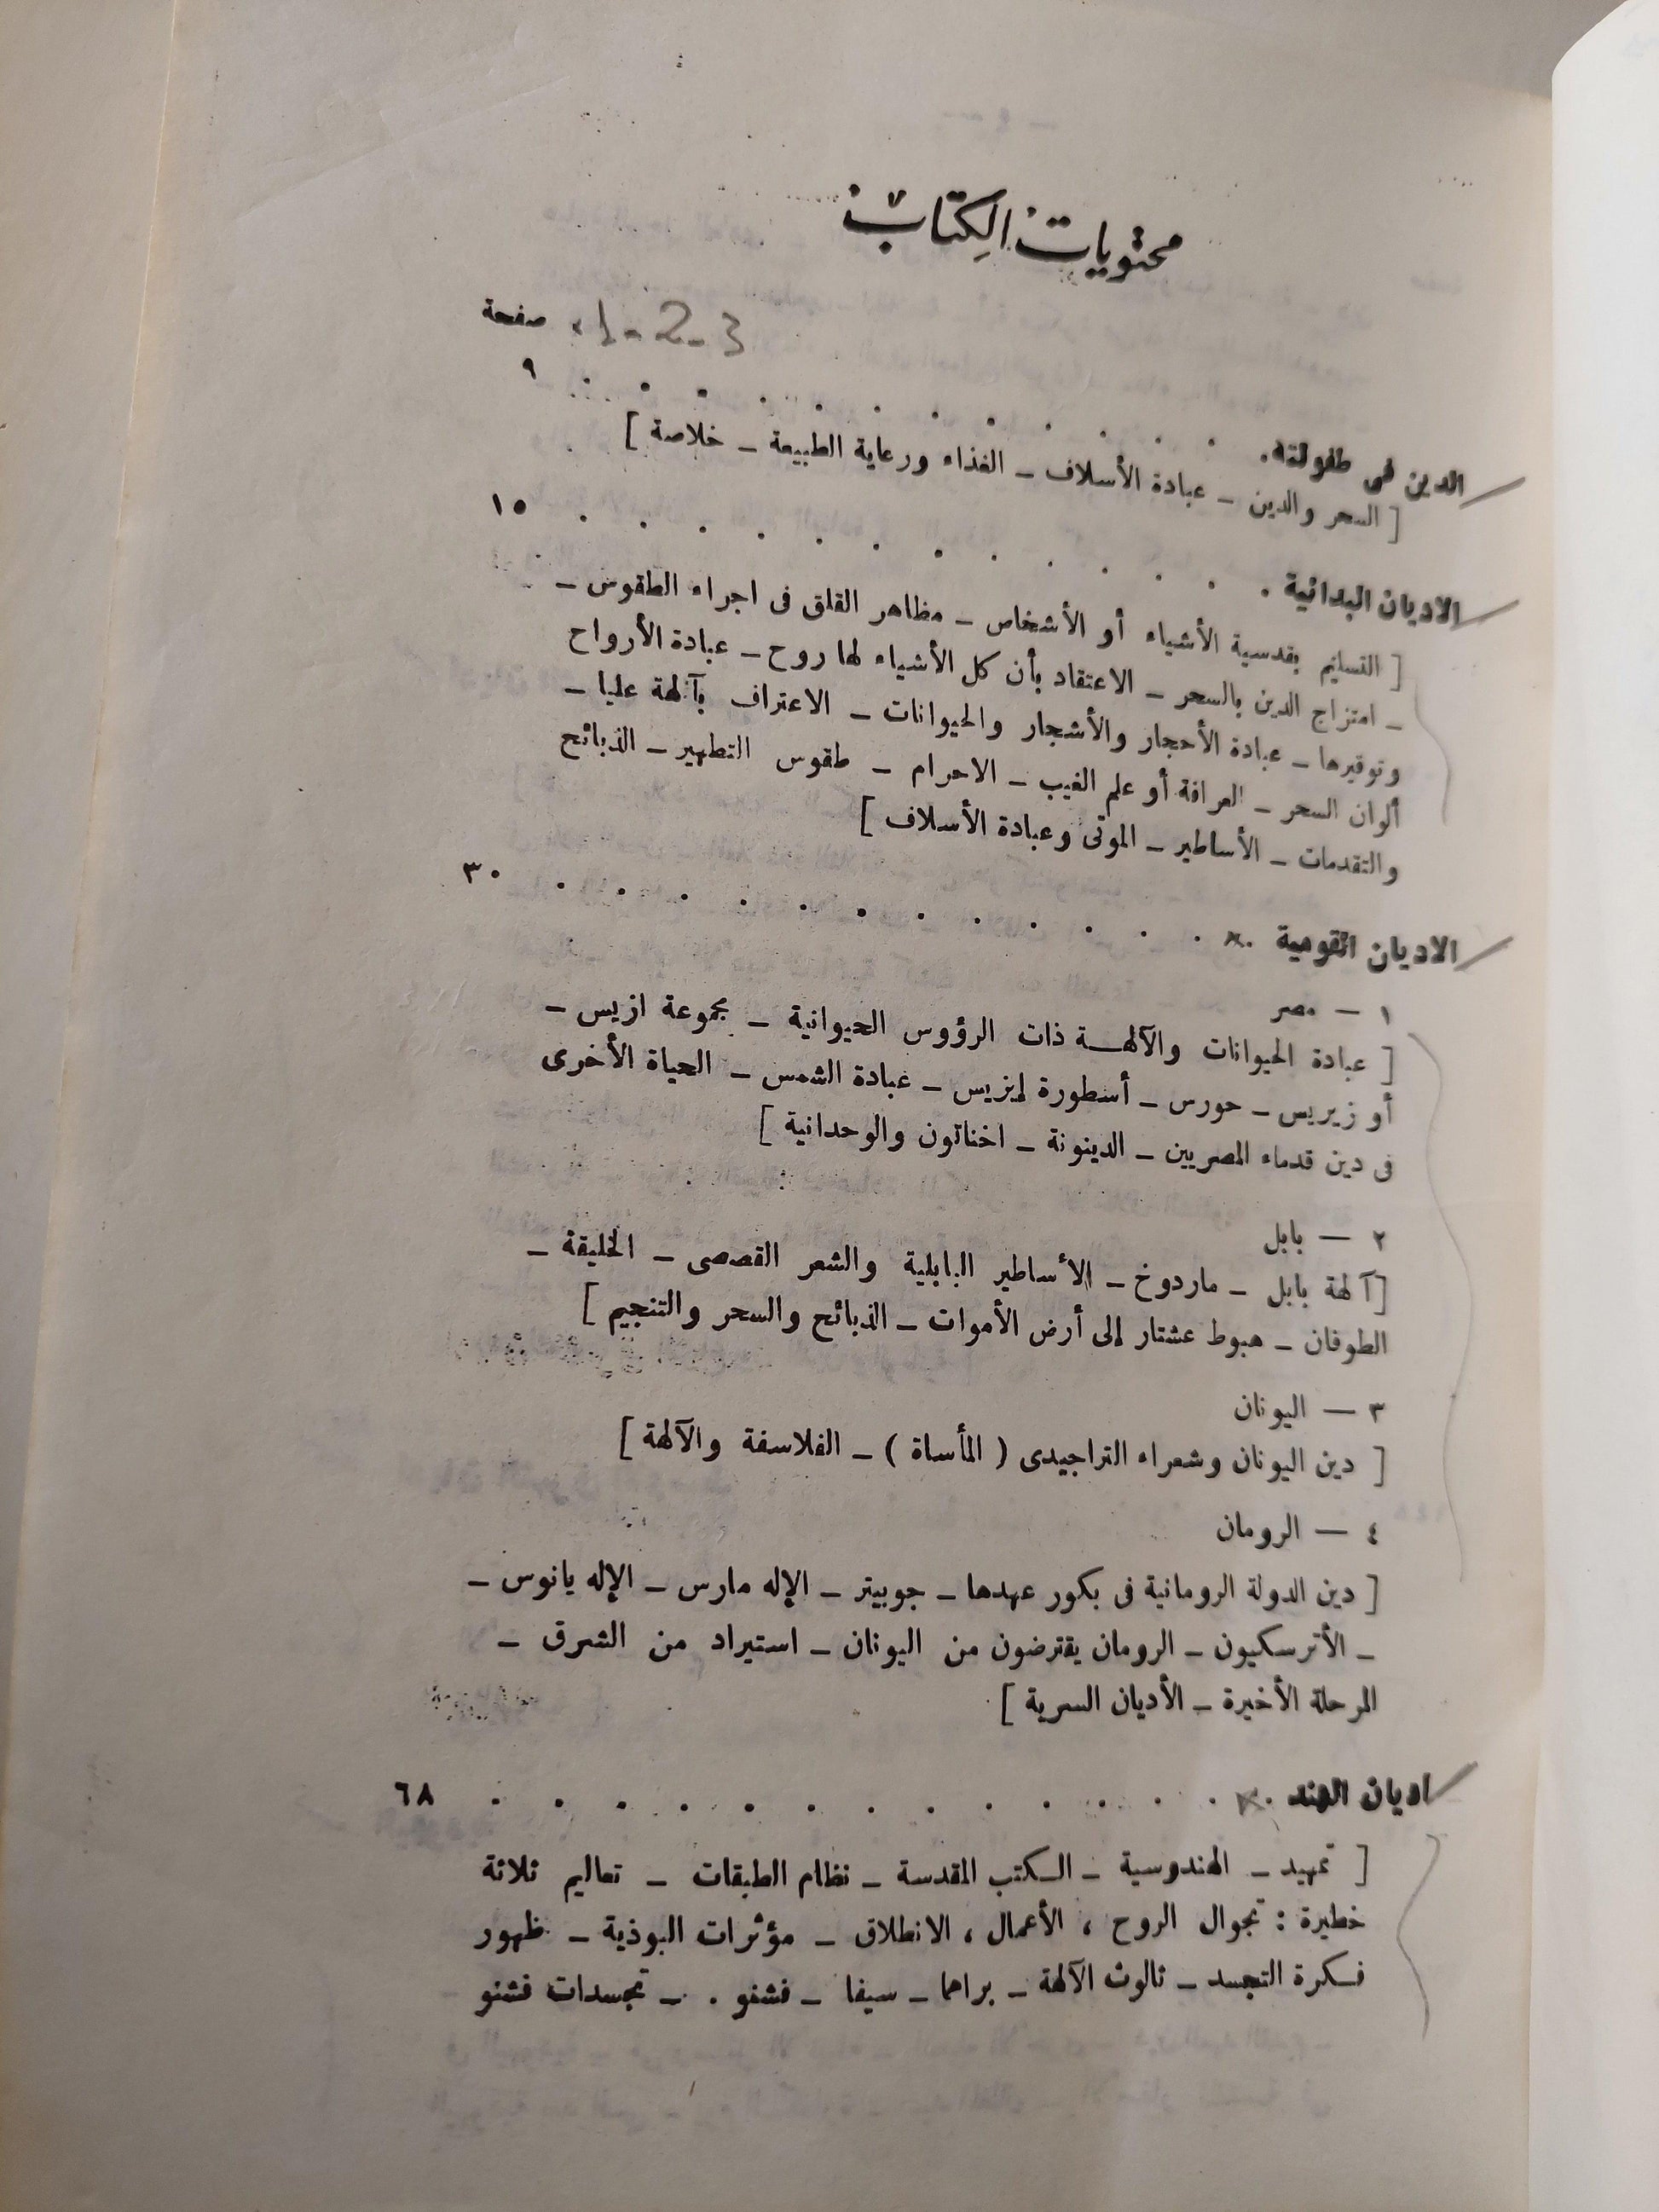 محتويات الكتاب
1-2-3 صفحة
الدين فى طفولته . . . . . . . . . . . . . ٩
[ السحر والدين – عبادة الأسلاف – الغذاء ورعاية الطبيعة – خلاصة ]
الاديان البدائية . . . . . . . . . . . . . ١٥
[ التسليم بقدسية الأشياء أو الأشخاص – مظاهر القلق فى اجراء الطقوس –
– امتزاج الدين بالسحر – الاعتقاد بأن كل الأشياء لها روح – عبادة الأرواح
وتوقيرها – عبادة الأحجار والأشجار والحيوانات – الاعتراف بآلهة عليا –
ألوان السحر – العرافة أو علم الغيب – الاحرام – طقوس التطهير – الذبائح
والتقدمات – الأساطير – الموتى وعبادة الأسلاف ]
الاديان القومية . . . . . . . . . . . . . ٣٠
١ — مصر
[ عبادة الحيوانات والآلهـة ذات الرؤوس الحيوانية – مجموعة ازيس –
أوزيريس – حورس – أسطورة إيزيس – عبادة الشمس – الحياة الأخرى
فى دين قدماء المصريين – الدينونة – اخناتون والوحدانية ]
٢ — بابل
[ آلهة بابل – ماردوخ – الأساطير البابلية والشعر القصصى – الخليقة –
الطوفان – هبوط عشتار إلى أرض الأموات – الذبائح والسحر والتنجيم ]
٣ — اليونان
[ دين اليونان وشعراء التراجيدى ( المأساة ) – الفلاسفة والآلهة ]
٤ — الرومان
[ دين الدولة الرومانية فى بكور عهدها – جوبيتر – الإله مارس – الإله يانوس –
– الأترسكيون – الرومان يقترضون من اليونان – استيراد من الشرق –
المرحلة الأخيرة – الأديان السرية ]
اديان الهند . . . . . . . . . . . . . ٦٨
[ تمهيد – الهندوسية – الكتب المقدسة – نظام الطبقات – تعاليم ثلاثة
خطيرة : تجوال الروح ، الأعمال ، الانطلاق – مؤثرات البوذية – ظهور
فكرة التجسد – ثالوث الآلهة – براهما – سيفا – فشنو . – تجسدات فشنو